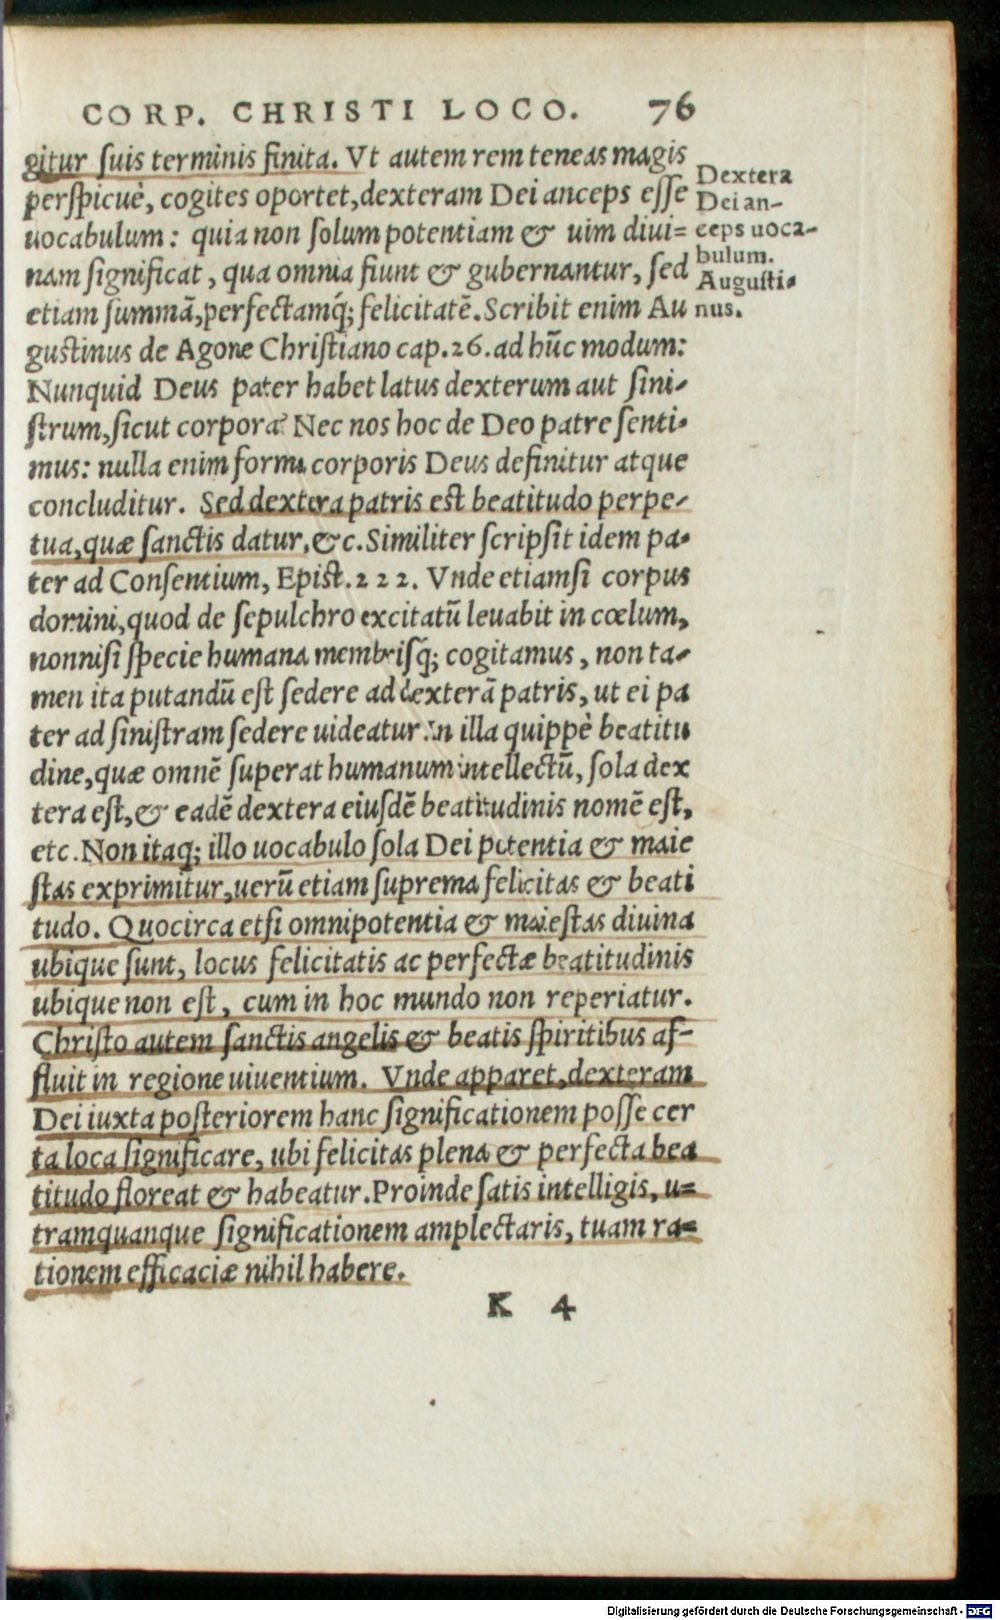 CORP. CHRISTI LOCO. 76
gitur suis terminis finita. Vt autem rem teneas magis
perspicuè, cogites oportet, dexteram Dei anceps esse
uocabulum: quia non solum potentiam & uim diui=
nam significat, qua omnia fiunt & gubernantur, sed
etiam summā, perfectamq́; felicitatē. Scribit enim Au
gustinus de Agone Christiano cap. 26. ad hūc modum:
Nunquid Deus pater habet latus dexterum aut sini-
strum, sicut corpora? Nec nos hoc de Deo patre senti-
mus: nulla enim forma corporis Deus definitur atque
concluditur. Sed dextera patris est beatitudo perpe-
tua, quæ sanctis datur, &c. Similiter scripsit idem pa-
ter ad Consentium, Epist. 222. Vnde etiamsi corpus
domini, quod de sepulchro excitatū leuabit in cœlum,
nonnisi specie humana membrisq́; cogitamus, non ta-
men ita putandū est sedere ad dexterā patris, ut ei pa
ter ad sinistram sedere uideatur. In illa quippè beatitu
dine, quæ omnē superat humanum intellectū, sola dex
tera est, & eadē dextera eiusdē beatitudinis nomē est,
etc. Non itaq; illo uocabulo sola Dei potentia & maie
stas exprimitur, uerū etiam suprema felicitas & beati
tudo. Quocirca etsi omnipotentia & maiestas diuina
ubique sunt, locus felicitatis ac perfectæ beatitudinis
ubique non est, cum in hoc mundo non reperiatur.
Christo autem sanctis angelis & beatis spiritibus af-
fluit in regione uiuentium. Vnde apparet, dexteram
Dei iuxta posteriorem hanc significationem posse cer
ta loca significare, ubi felicitas plena & perfecta bea
titudo floreat & habeatur. Proinde satis intelligis, u=
tramquanque significationem amplectaris, tuam ra=
tionem efficaciæ nihil habere.
K 4
Dextera
Dei an-
ceps uoca-
bulum.
Augusti-
nus.
Digitalisierung gefördert durch die Deutsche Forschungsgemeinschaft - DFG